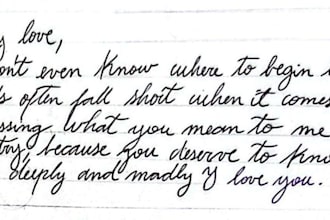 love,
even know where to begin
often fall short when it comes
what you mean to me
because you deserve to
deeply and madly I love you.